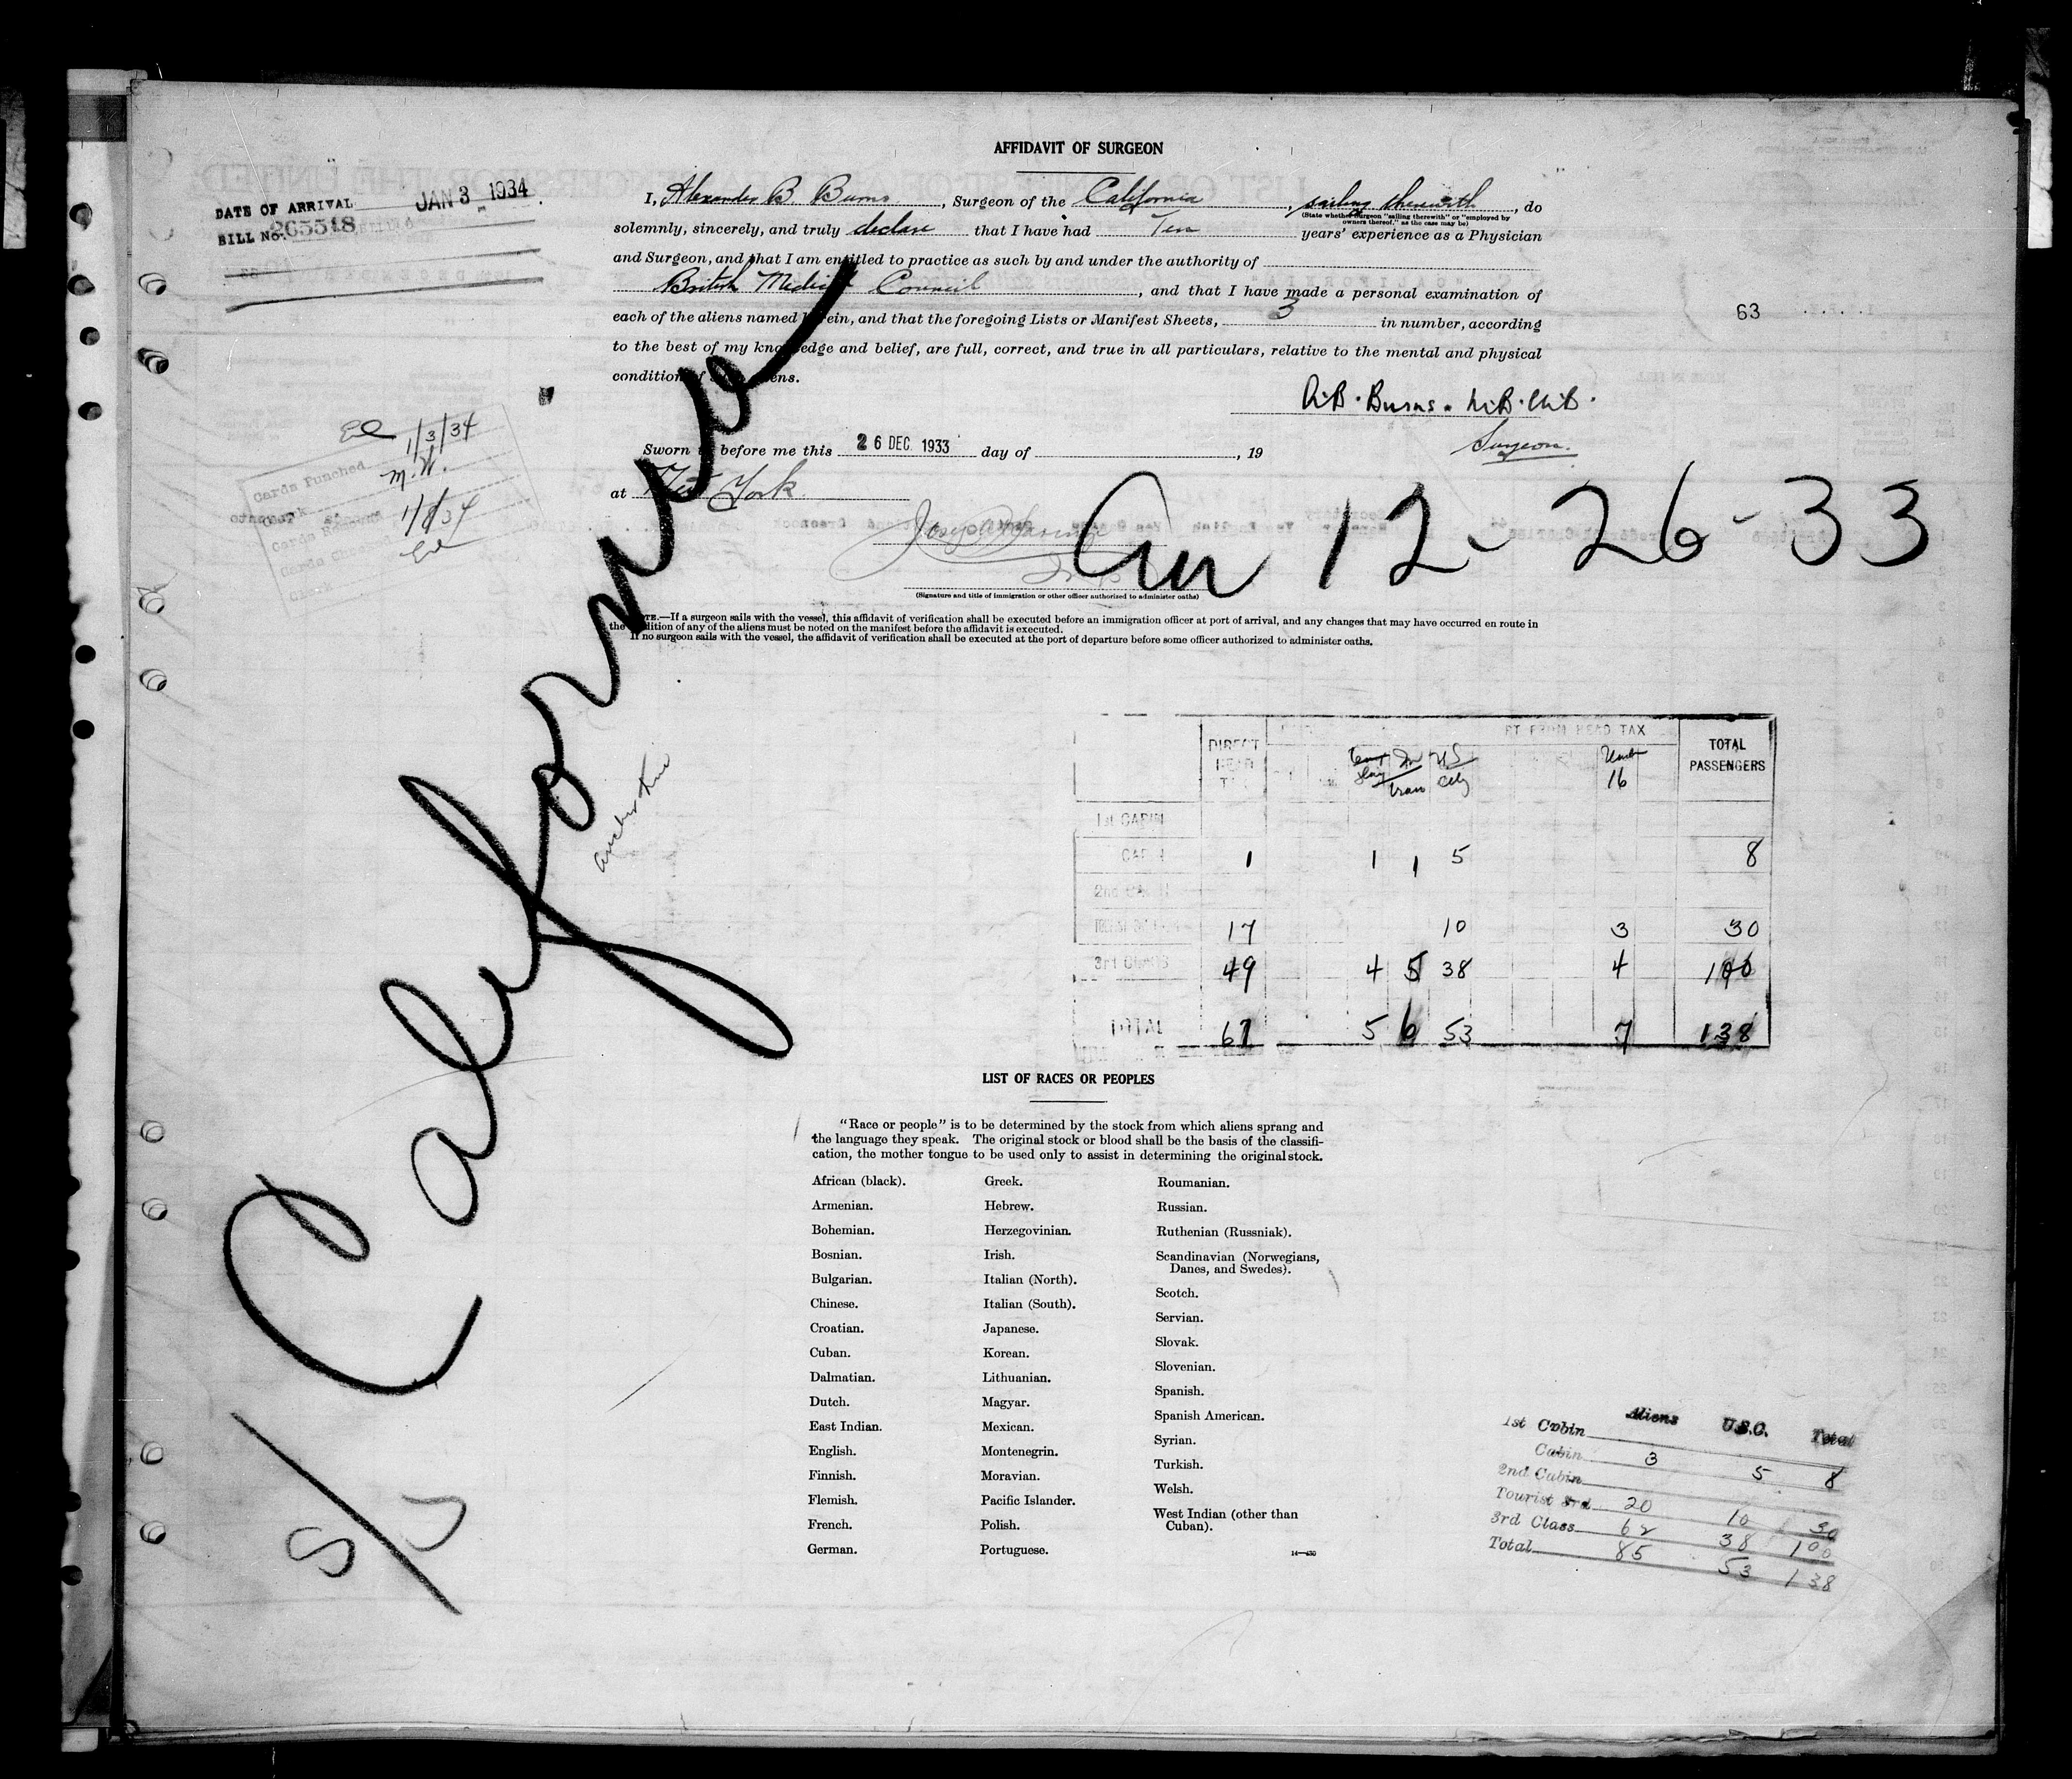 AFFIDAVIT OF SURGEON
DATE OF ARRIVAL JAN 3 1934
BILL No. 265518
I, Alexander B Burns, Surgeon of the California, sailing therewith, do
(State whether surgeon "sailing therewith" or "employed by owners thereof," as the case may be)
solemnly, sincerely, and truly declare that I have had Ten years' experience as a Physician
and Surgeon, and that I am entitled to practice as such by and under the authority of
British Council, and that I have made a personal examination of
each of the aliens named herein, and that the foregoing Lists or Manifest Sheets, 3 in number, according
to the best of my knowledge and belief, are full, correct, and true in all particulars, relative to the mental and physical
condition of aliens.
63
A.B. Burns. M.B. Ch.B.
Surgeon.
Sworn to before me this 26 DEC. 1933 day of , 19
at New York
1/3/34
Cards Punched
M.W.
Clerk
1/8/34
Clerk
Arr 12-26-33
(Signature and title of immigration or other officer authorized to administer oaths)
NOTE.—If a surgeon sails with the vessel, this affidavit of verification shall be executed before an immigration officer at port of arrival, and any changes that may have occurred en route in
the condition of any of the aliens must be noted on the manifest before the affidavit is executed.
If no surgeon sails with the vessel, the affidavit of verification shall be executed at the port of departure before some officer authorized to administer oaths.
S/S California
DIRECT HEAD TAX PT FROM HEAD TAX TOTAL PASSENGERS
In Trans US City Under 16
1st CABIN
CABIN 1 1 1 5 8
2nd CABIN
17 10 3 30
3rd CLASS 49 4 5 38 4 100
TOTAL 67 5 6 53 7 138
LIST OF RACES OR PEOPLES
"Race or people" is to be determined by the stock from which aliens sprang and
the language they speak. The original stock or blood shall be the basis of the classifi-
cation, the mother tongue to be used only to assist in determining the original stock.
African (black).
Armenian.
Bohemian.
Bosnian.
Bulgarian.
Chinese.
Croatian.
Cuban.
Dalmatian.
Dutch.
East Indian.
English.
Finnish.
Flemish.
French.
German.
Greek.
Hebrew.
Herzegovinian.
Irish.
Italian (North).
Italian (South).
Japanese.
Korean.
Lithuanian.
Magyar.
Mexican.
Montenegrin.
Moravian.
Pacific Islander.
Polish.
Portuguese.
Roumanian.
Russian.
Ruthenian (Russniak).
Scandinavian (Norwegians,
Danes, and Swedes).
Scotch.
Servian.
Slovak.
Slovenian.
Spanish.
Spanish American.
Syrian.
Turkish.
Welsh.
West Indian (other than
Cuban).
14—430
Aliens U.S.C. Total
1st Cabin
Cabin 3 5 8
2nd Cabin
Tourist 3rd 20 10 30
3rd Class 62 38 100
Total 85 53 138